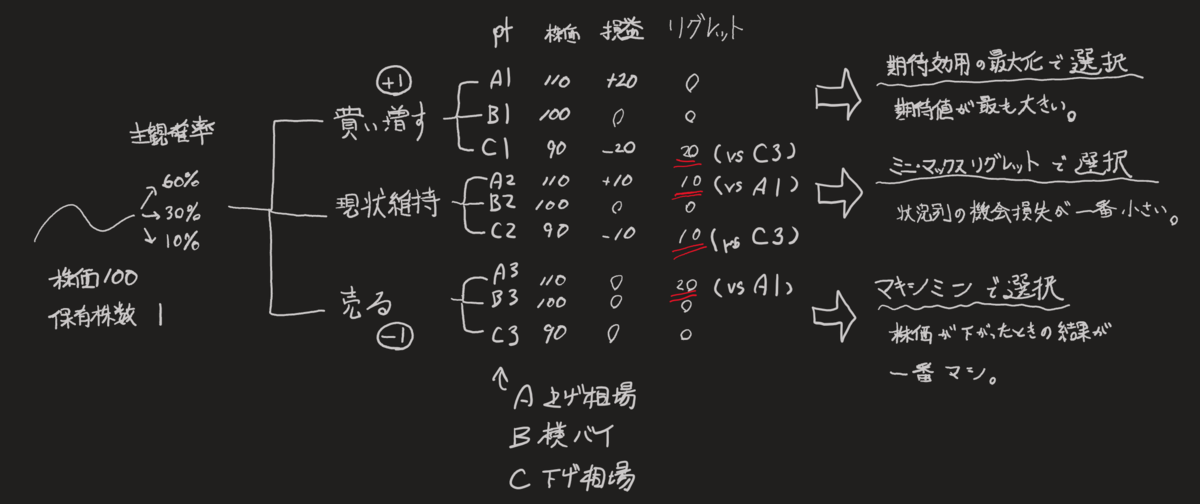 主観確率
60%
30%
10%
株価100
保有株数 1
+1
買い増す
現状維持
売る
-1
pt 株価 損益 リグレット
A1 110 +20 0
B1 100 0 0
C1 90 -20 20 (vs C3)
A2 110 +10 10 (vs A1)
B2 100 0 0
C2 90 -10 10 (vs C3)
A3 110 0 20 (vs A1)
B3 100 0 0
C3 90 0 0
↑ A 上げ相場
B 横バイ
C 下げ相場
期待効用の最大化で選択
期待値が最も大きい。
ミニ・マックスリグレットで選択
状況別の機会損失が一番小さい。
マキシミンで選択
株価が下がったときの結果が
一番マシ。